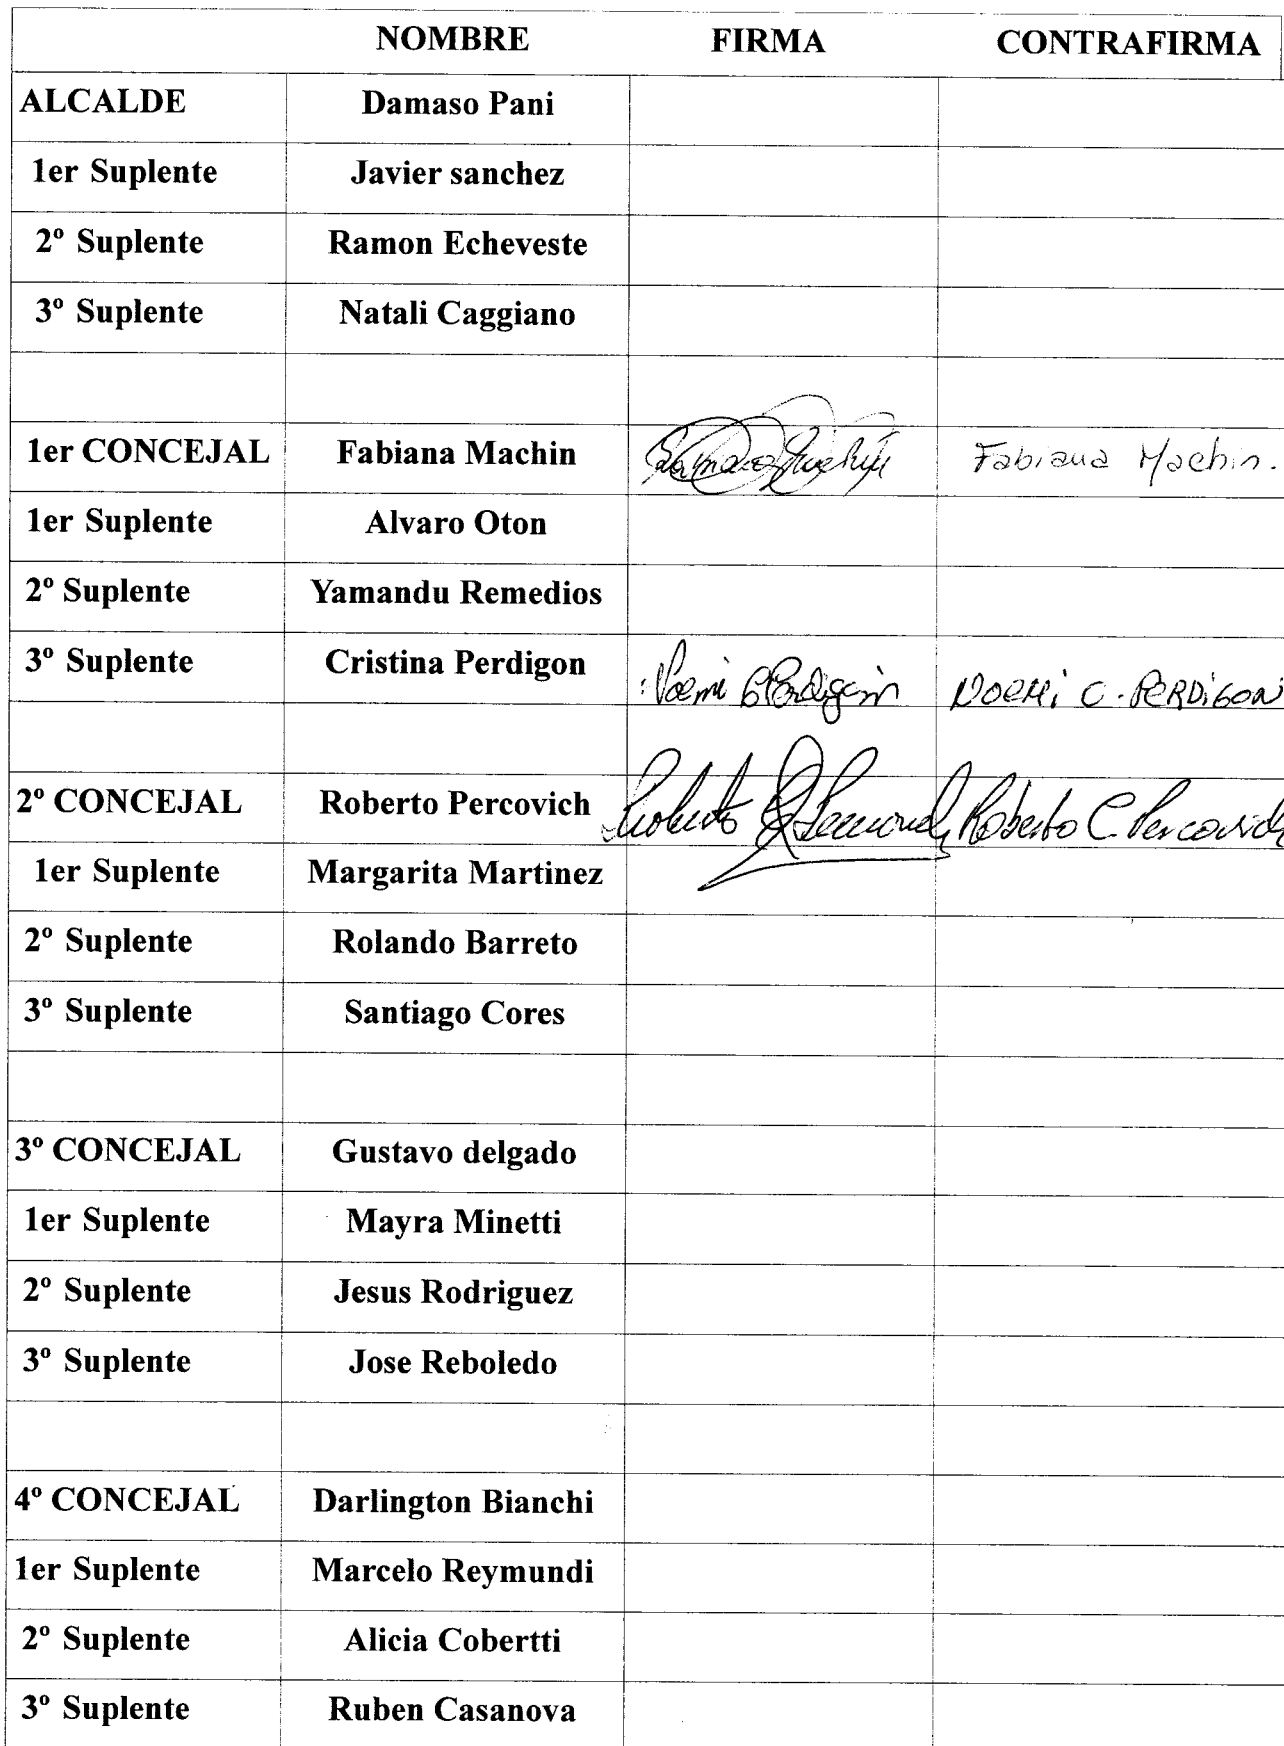 NOMBRE FIRMA CONTRAFIRMA
ALCALDE Damaso Pani
1er Suplente Javier sanchez
2º Suplente Ramon Echeveste
3º Suplente Natali Caggiano
1er CONCEJAL Fabiana Machin Fabiana Machin.
1er Suplente Alvaro Oton
2º Suplente Yamandu Remedios
3º Suplente Cristina Perdigon Noemi C Perdigon NOEMi C. PERDiGON
2º CONCEJAL Roberto Percovich Roberto Roberto C. Percovich
1er Suplente Margarita Martinez
2º Suplente Rolando Barreto
3º Suplente Santiago Cores
3º CONCEJAL Gustavo delgado
1er Suplente Mayra Minetti
2º Suplente Jesus Rodriguez
3º Suplente Jose Reboledo
4º CONCEJAL Darlington Bianchi
1er Suplente Marcelo Reymundi
2º Suplente Alicia Cobertti
3º Suplente Ruben Casanova